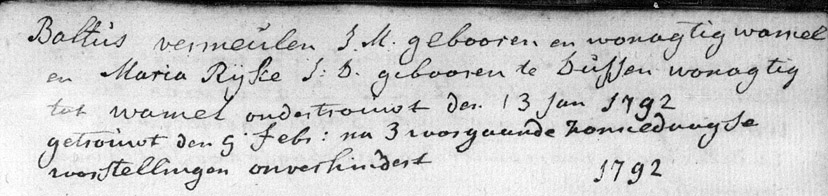 Baltus vermeulen J. M. gebooren en wonagtig wamel
en Maria Rijke J: D. gebooren te Dussen wonagtig
tot wamel ondertrouwt den 13 Jan 1792
getrouwt den 5 Febr: na 3 voorgaande zonsedaagse
voorstellingen onverhindert 1792